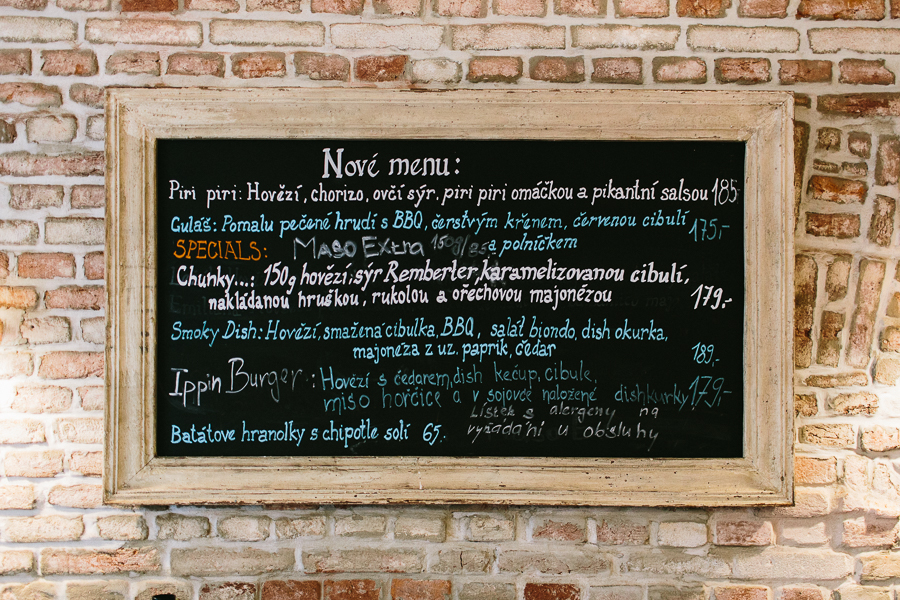 Nové menu:
Piri piri: Hovězí, chorizo, ovčí sýr, piri piri omáčkou a pikantní salsou 185
Guláš: Pomalu pečené hrudí s BBQ, čerstvým křenem, červenou cibulí 175,-
SPECIALS: Maso Extra 150g/ a polníčkem
Chunky...: 150g hovězí, sýr Remberter, karamelizovanou cibulí,
nakládanou hruškou, rukolou a ořechovou majonézou 179.-
Smoky Dish: Hovězí, smažená cibulka, BBQ, salát biondo, dish okurka,
majonéza z uz. paprik, čedar 189,-
Ippin Burger : Hovězí s čedarem, dish kečup, cibule,
miso hořčice a v sojovce naložené dishkurky 179,-
Lístek s alergeny na
Batátove hranolky s chipotle solí 65,- vyžádání u obsluhy